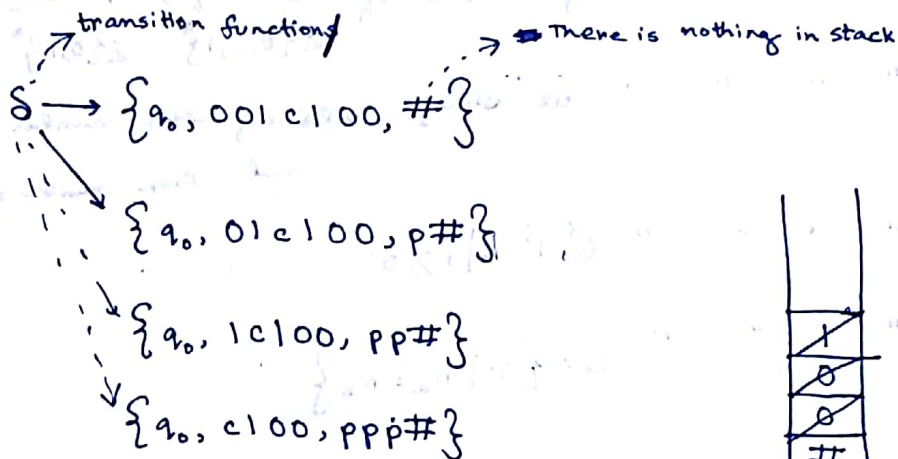 transition functions
There is nothing in stack
δ → {q₀, 001c100, #}
{q₀, 01c100, p#}
{q₀, 1c100, pp#}
{q₀, c100, ppp#}
1
0
0
#